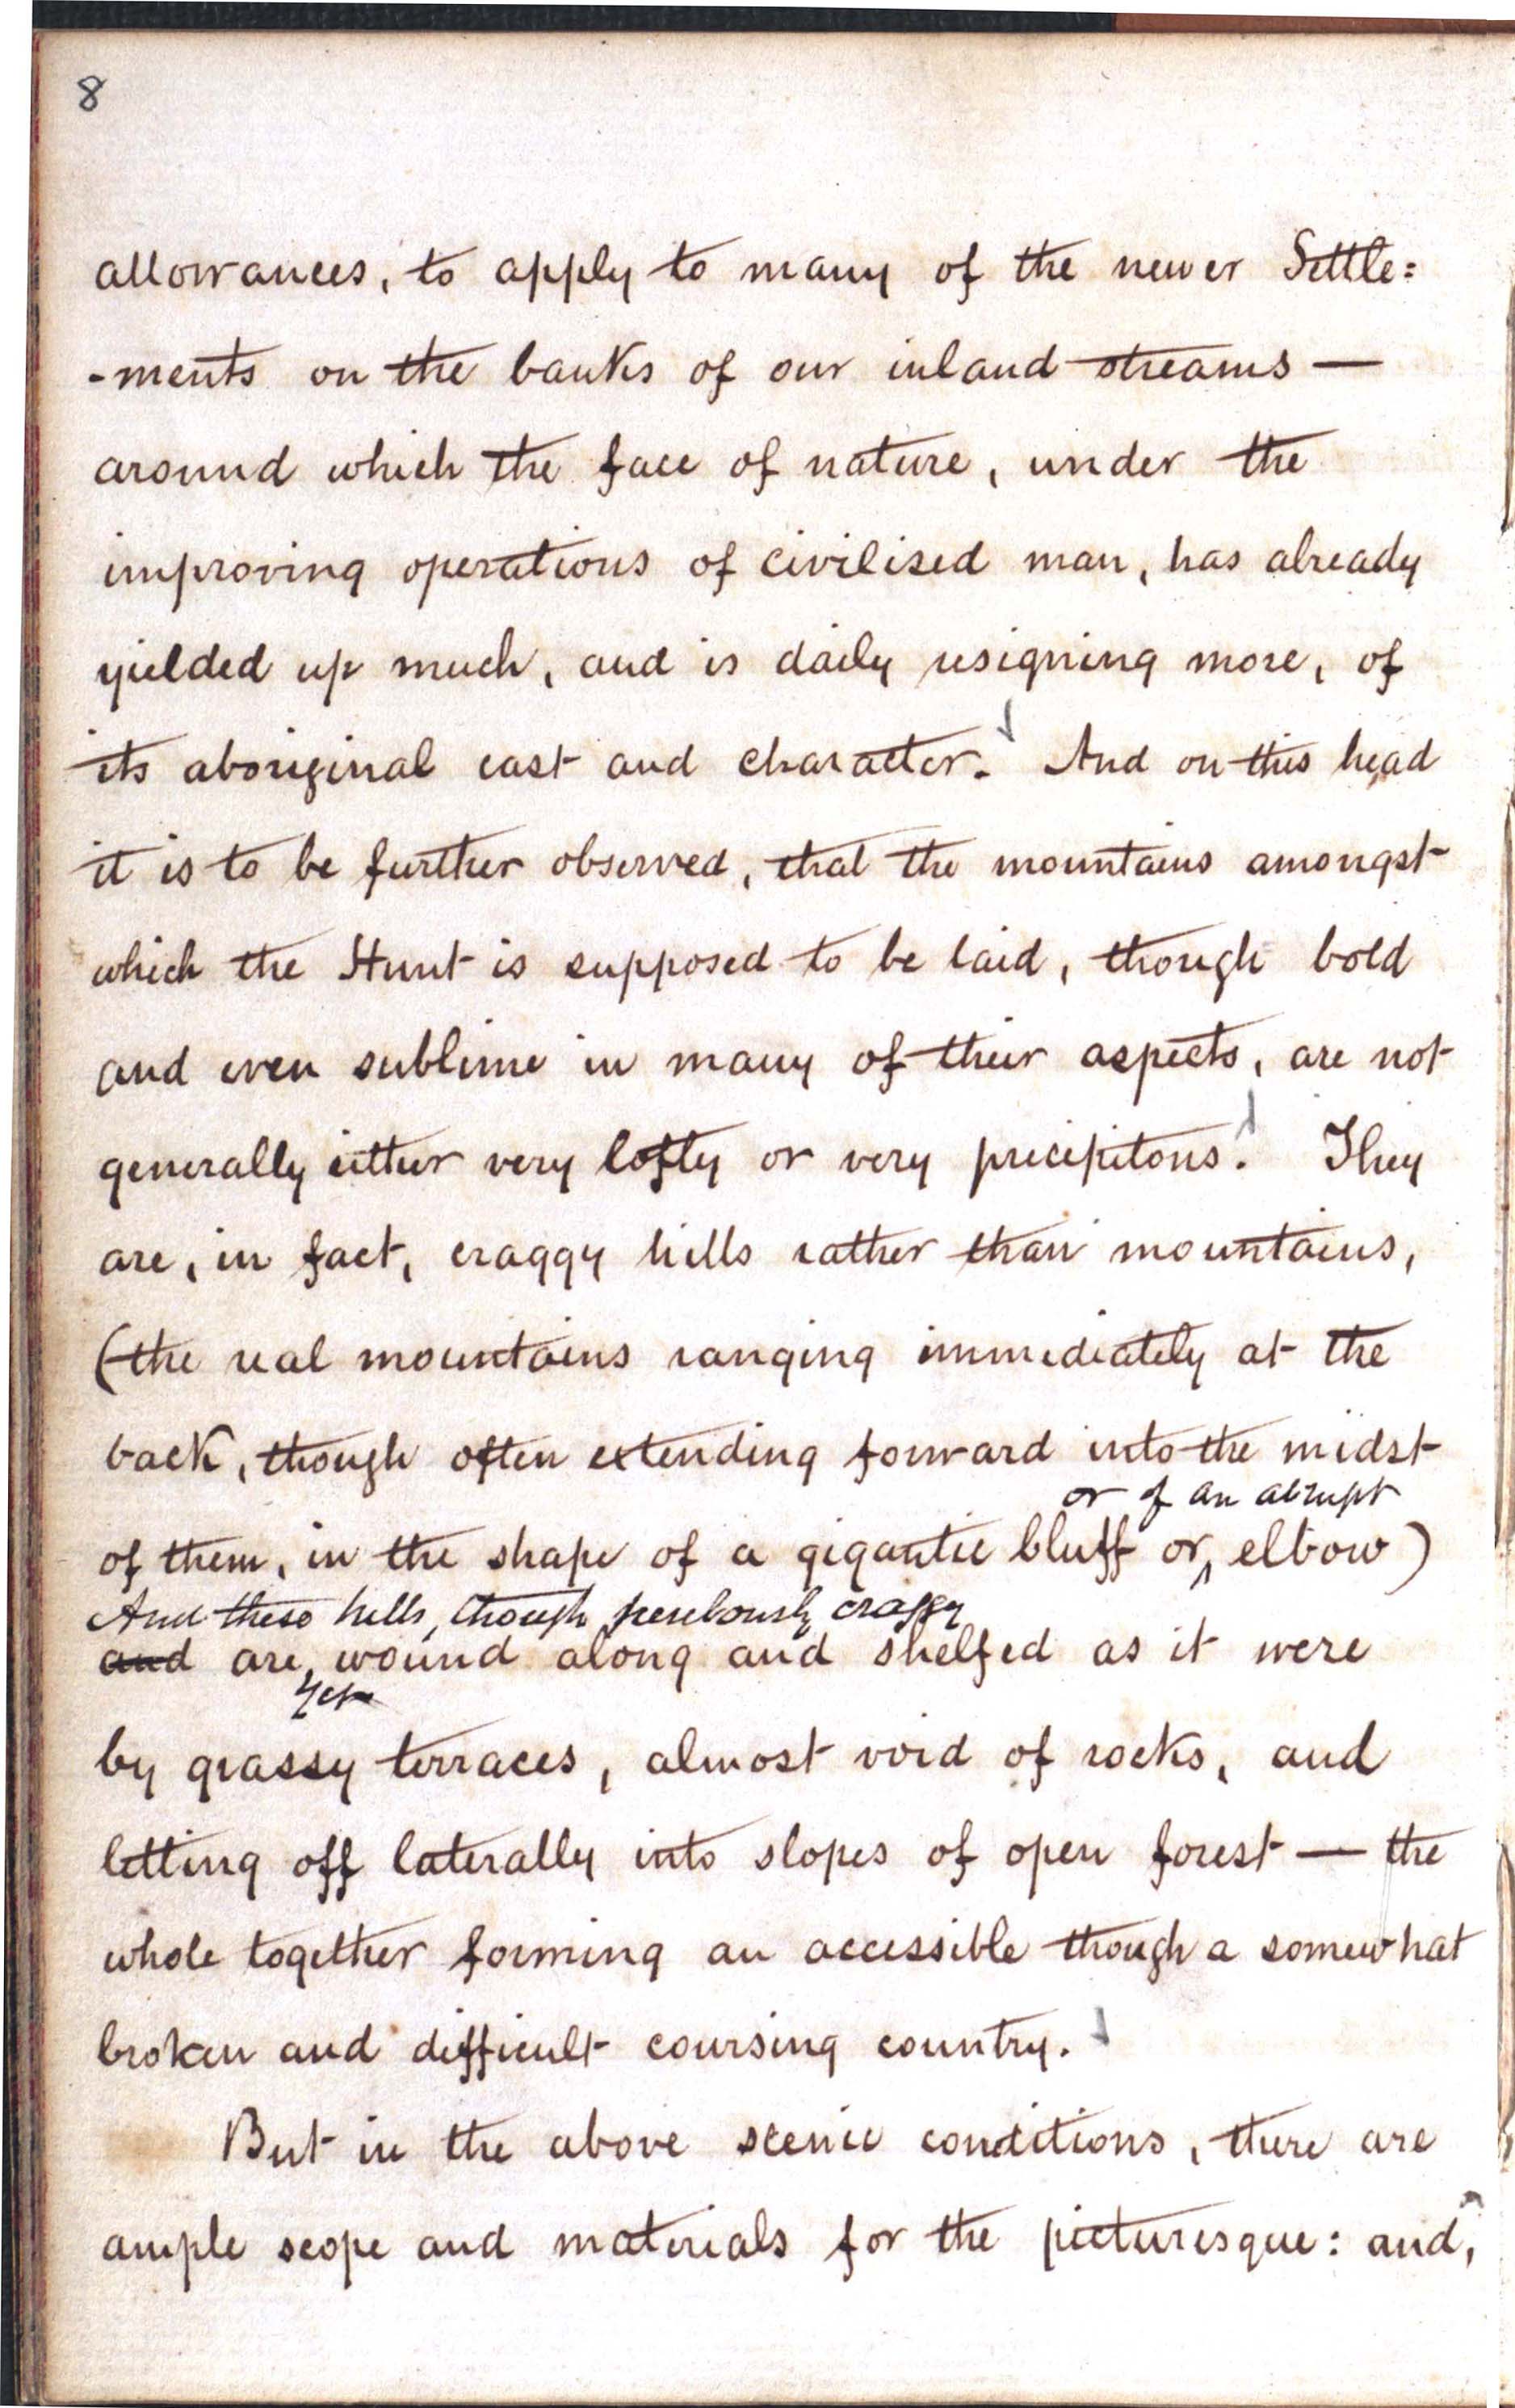 8
allowances, to apply to many of the newer Settle=
-ments on the banks of our inland streams —
around which the face of nature, under the
improving operations of civilised man, has already
yielded up much, and is daily resigning more, of
its aboriginal cast and character. And on this head
it is to be further observed, that the mountains amongst
which the Hunt is supposed to be laid, though bold
and even sublime in many of their aspects, are not
generally either very lofty or very precipitous. They
are, in fact, craggy hills rather than mountains,
(the real mountains ranging immediately at the
back, though often extending forward into the midst
or of an abrupt
of them, in the shape of a gigantic bluff or elbow)
And these hills, though perilously craggy
and are, wound along and shelfed as it were
yet
by grassy terraces, almost void of rocks, and
letting off laterally into slopes of open forest — the
whole together forming an accessible though a somewhat
broken and difficult coursing country.
But in the above scenic conditions, there are
ample scope and materials for the picturesque: and,